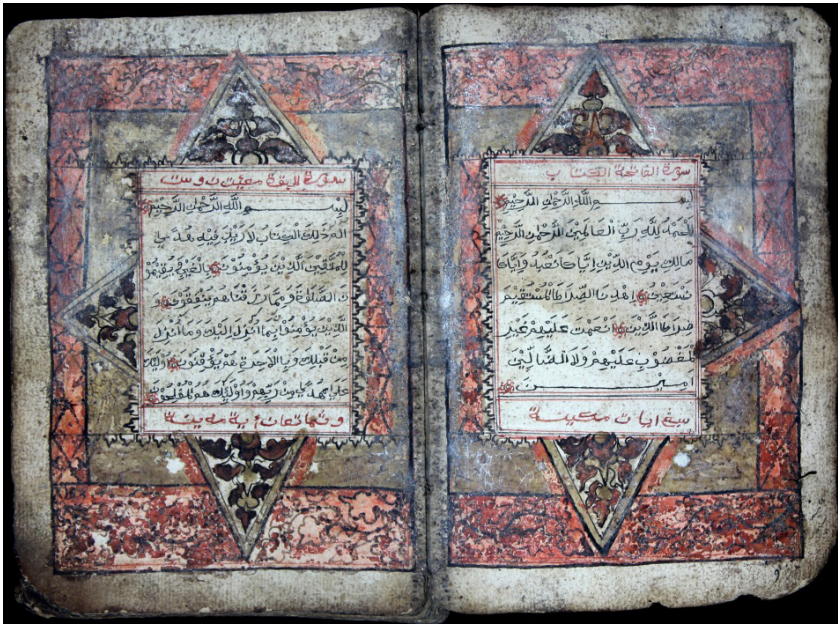 سورة الفاتحة الكتاب
بِسْمِ اللَّهِ الرَّحْمٰنِ الرَّحِيْمِ
اَلْحَمْدُ لِلّٰهِ رَبِّ الْعَالَمِيْنَ الرَّحْمٰنِ الرَّحِيْمِ
مَالِكِ يَوْمِ الدِّيْنِ اِيَّاكَ نَعْبُدُ وَاِيَّاكَ
نَسْتَعِيْنُ اِهْدِنَا الصِّرَاطَ الْمُسْتَقِيْمَ
صِرَاطَ الَّذِيْنَ اَنْعَمْتَ عَلَيْهِمْ غَيْرِ
الْمَغْضُوْبِ عَلَيْهِمْ وَلَا الضَّالِّيْنَ
اميـــن
سبع ايات مكية
سورة البقرة وست
بِسْمِ اللَّهِ الرَّحْمٰنِ الرَّحِيْمِ
الم ذٰلِكَ الْكِتَابُ لَا رَيْبَ فِيْهِ هُدًى
لِلْمُتَّقِيْنَ الَّذِيْنَ يُؤْمِنُوْنَ بِالْغَيْبِ وَيُقِيْمُوْ
نَ الصَّلَاةَ وَمِمَّا رَزَقْنَاهُمْ يُنْفِقُوْنَ وَ
الَّذِيْنَ يُؤْمِنُوْنَ بِمَا اُنْزِلَ اِلَيْكَ وَمَا اُنْزِلَ
مِنْ قَبْلِكَ وَبِالْاٰخِرَةِ هُمْ يُوْقِنُوْنَ اُولٰئِكَ
عَلٰى هُدًى مِنْ رَبِّهِمْ وَاُولٰئِكَ هُمُ الْمُفْلِحُوْنَ
أية مدينة